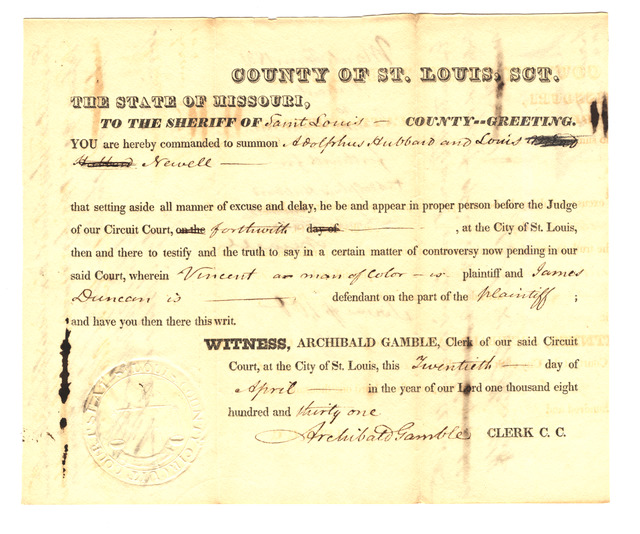 COUNTY OF ST. LOUIS, SCT.
THE STATE OF MISSOURI,
TO THE SHERIFF OF Saint Louis — COUNTY--GREETING.
YOU are hereby commanded to summon Adolphus Hubbard and Louis
Hubbard Newell —
that setting aside all manner of excuse and delay, he be and appear in proper person before the Judge
of our Circuit Court, on the forthwith day of — , at the City of St. Louis,
then and there to testify and the truth to say in a certain matter of controversy now pending in our
said Court, wherein Vincent a man of Color — is plaintiff and James
Duncan is — defendant on the part of the plaintiff ;
and have you then there this writ.
WITNESS, ARCHIBALD GAMBLE, Clerk of our said Circuit
Court, at the City of St. Louis, this Twentieth — day of
April — in the year of our Lord one thousand eight
hundred and thirty one
Archibald Gamble CLERK C. C.